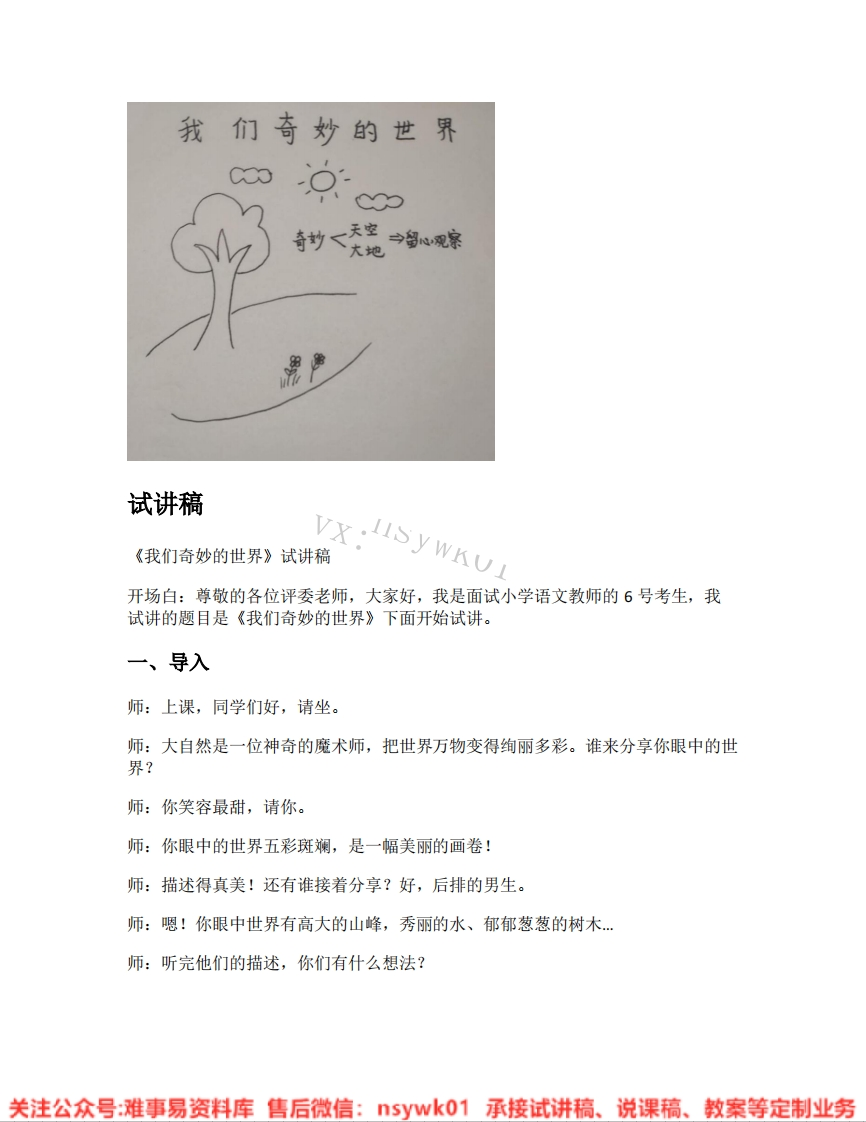 我们奇妙的世界
奇妙
天空
大地
留心观察
试讲稿
VX:nsywk01
《我们奇妙的世界》试讲稿
开场白：尊敬的各位评委老师，大家好，我是面试小学语文教师的 6 号考生，我
试讲的题目是《我们奇妙的世界》下面开始试讲。
一、导入
师：上课，同学们好，请坐。
师：大自然是一位神奇的魔术师，把世界万物变得绚丽多彩。谁来分享你眼中的世
界？
师：你笑容最甜，请你。
师：你眼中的世界五彩斑斓，是一幅美丽的画卷！
师：描述得真美！还有谁接着分享？好，后排的男生。
师：嗯！你眼中世界有高大的山峰，秀丽的水、郁郁葱葱的树木...
师：听完他们的描述，你们有什么想法？
关注公众号:难事易资料库 售后微信：nsywk01 承接试讲稿、说课稿、教案等定制业务